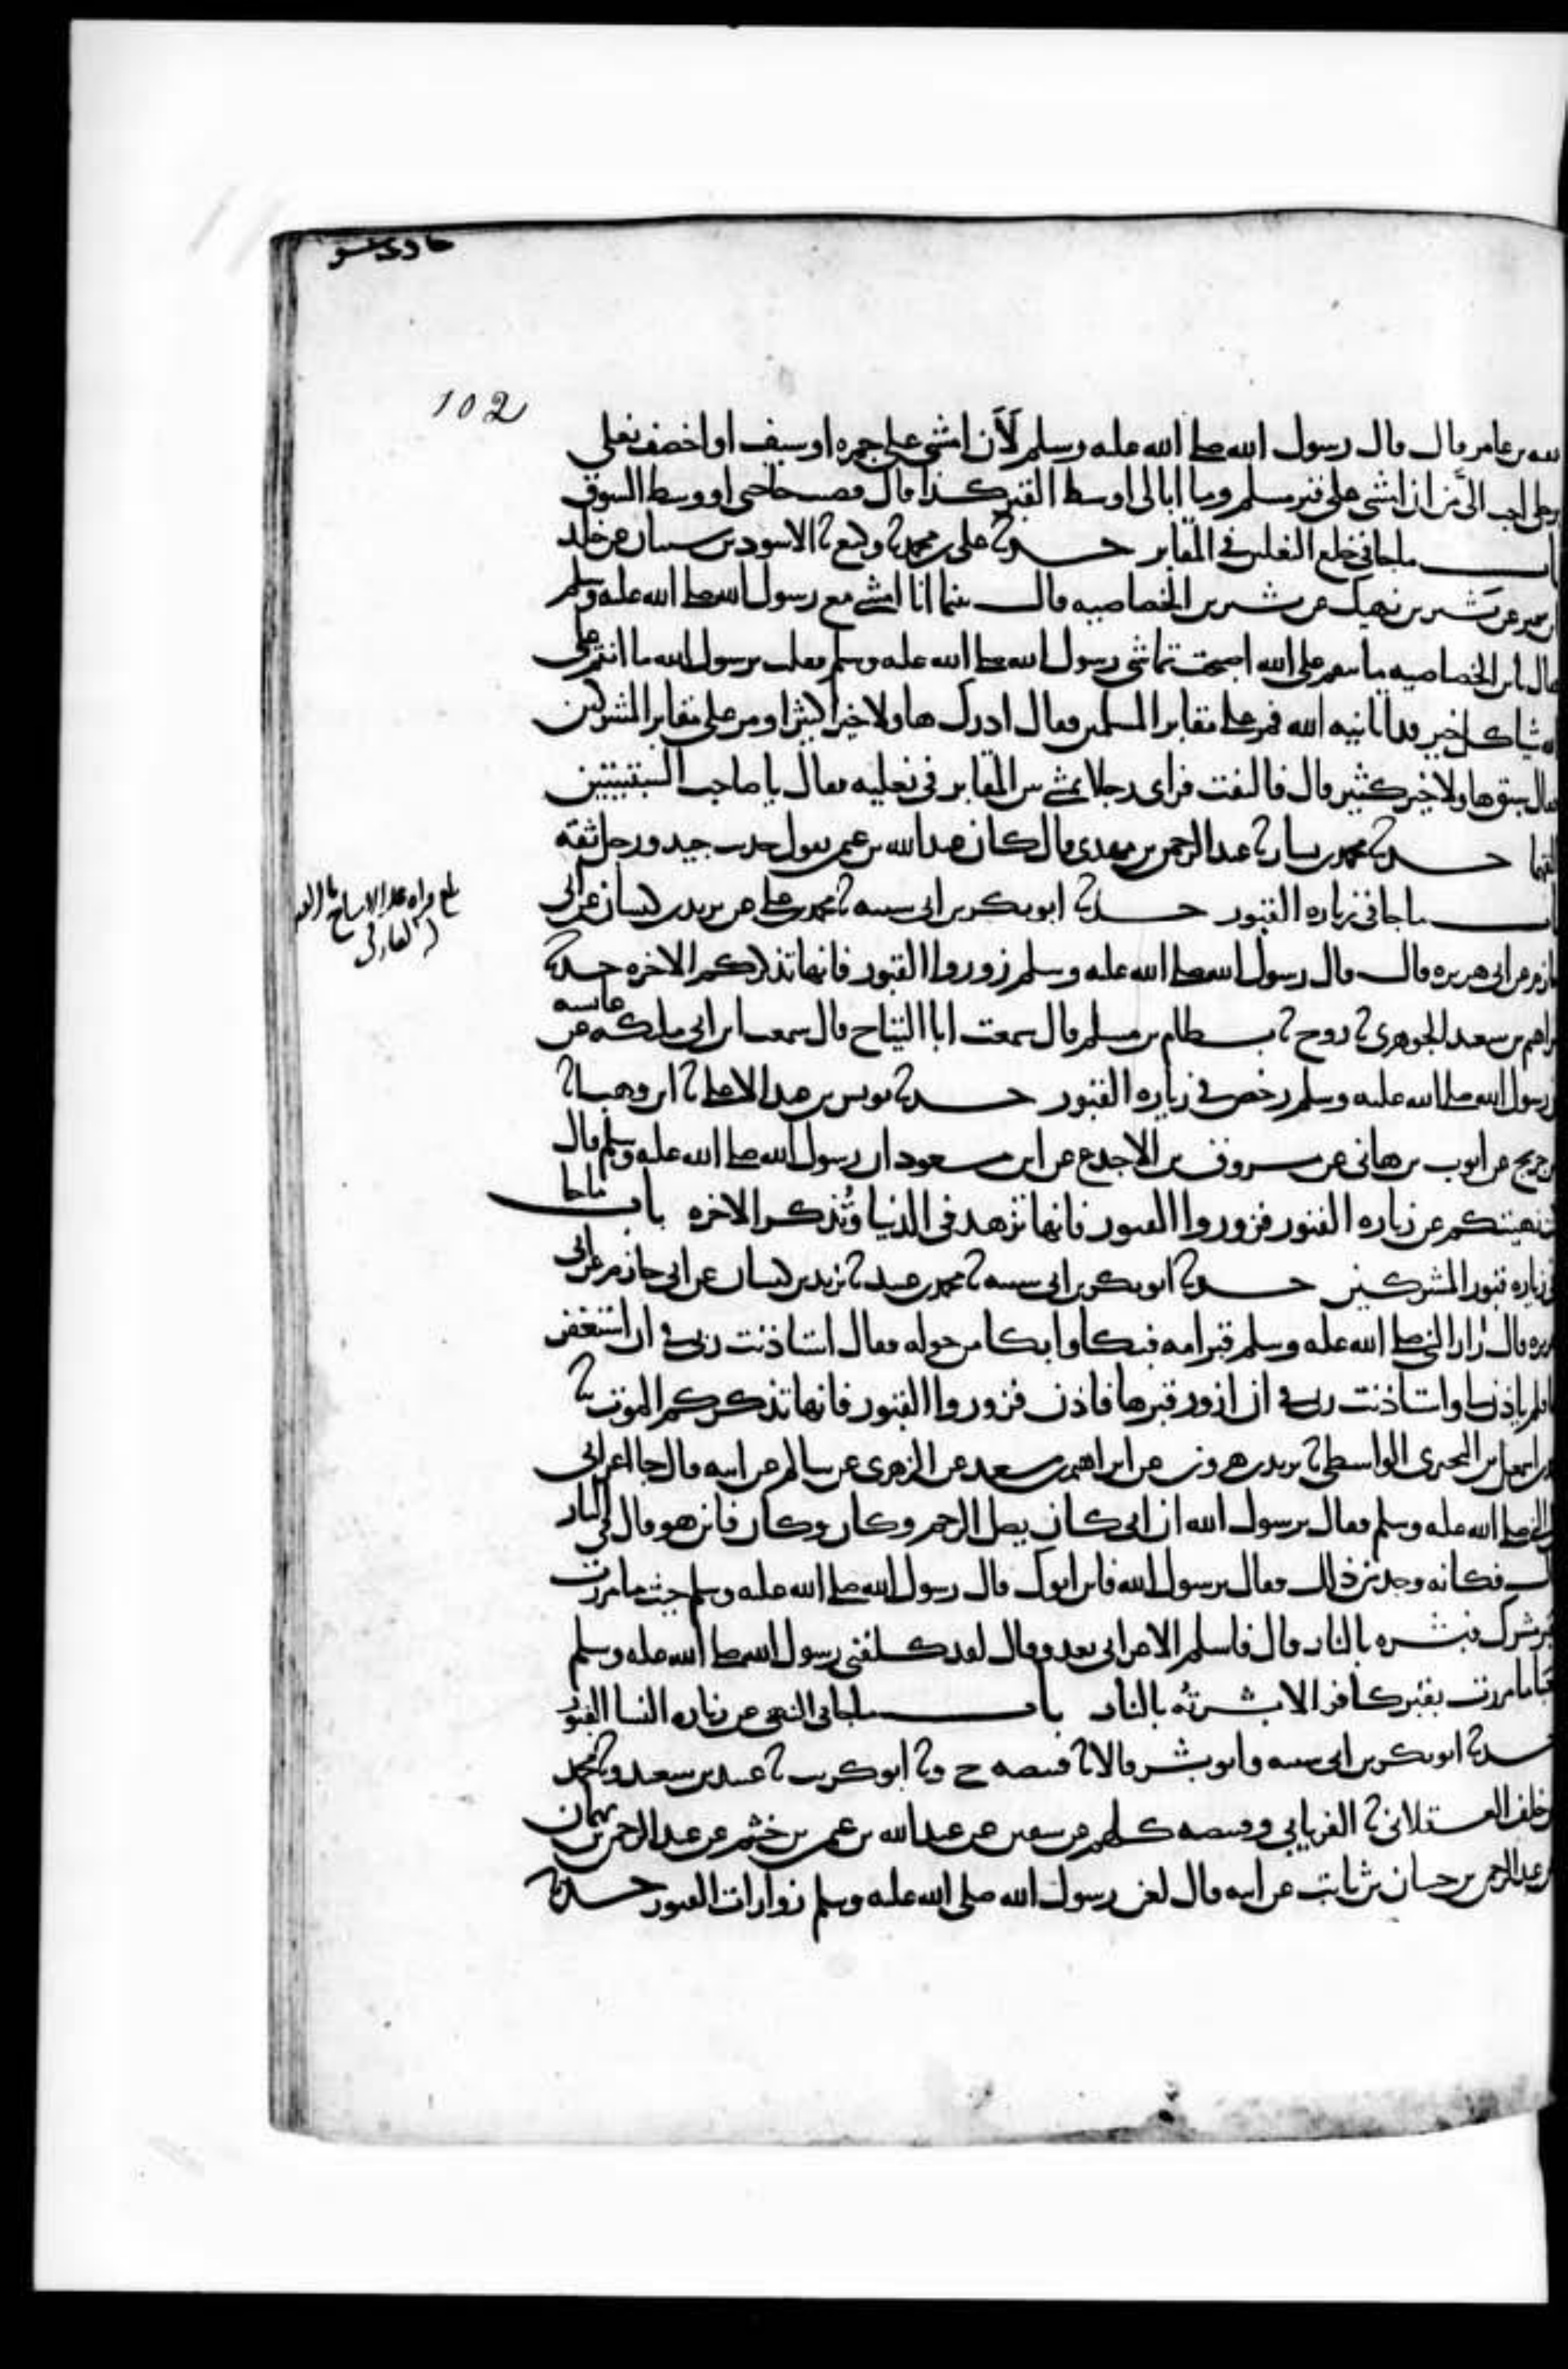 حادي عشر
102
لله بن عامر قال قال رسول الله صلى الله عليه وسلم لَأَن امشي على جمره او سيف او اخصف نعلي
برجلي احب الىَّ من ان امشي على قبر مسلم وما ابالي اوسط القبر كذا قال قضيت حاجتي او وسط السوق
باب ماجا في خلع النعلين في المقابر حدثنا علي بن محمد ثنا وكيع ثنا الاسود بن شيبان عن خالد
بن سمير عن بَشير بن نهيك عن بشير بن الخصاصيه قال بينما انا امشي مع رسول الله صلى الله عليه وسلم
فقال يا بن الخصاصيه ما تنقم على الله اصبحت تماشي رسول الله صلى الله عليه وسلم فقلت يرسول الله ما انقم على
الله شيا كل خير قد اتانيه الله فمر على مقابر المسلمين فقال ادرك هاولا خيرا كثيرا ومر على مقابر المشركين
فقال سبق هاولا خير كثير قال فالتفت فراى رجلا يمشي بين المقابر في نعليه فقال يا صاحب السبتيتين
القهما حدثنا محمد بن بشار ثنا عبد الرحمن بن مهدي قال كان عبد الله بن عثمن يقول حديث جيد ورجل ثقه
باب ماجا في زياره القبور حدثنا ابو بكر بن ابي شيبه ثنا محمد بن عبيد عن يزيد بن كيسان عن ابي
حازم عن ابي هريره قال قال رسول الله صلى الله عليه وسلم زوروا القبور فانها تذكركم الاخره حدثنا
ابراهيم بن سعيد الجوهري ثنا روح ثنا بسطام بن مسلم قال سمعت ابا التياح قال سمعت ابن ابي مليكه عن عايشه
ان رسول الله صلى الله عليه وسلم رخص في زياره القبور حدثنا يونس بن عبد الاعلى ثنا ابن وهب انا
ابن جريج عن ايوب بن هاني عن مسروق بن الاجدع عن ابن مسعود ان رسول الله صلى الله عليه وسلم قال
كنت نهيتكم عن زياره القبور فزوروا القبور فانها تزهد في الدنيا وتُذكر الاخره باب ماجا
في زياره قبور المشركين حدثنا ابو بكر بن ابي شيبه ثنا محمد بن عبيد ثنا يزيد بن كيسان عن ابي حازم عن ابي
هريره قال زار النبي صلى الله عليه وسلم قبر امه فبكا وابكا من حوله فقال استاذنت ربي في ان استغفر
لها فلم ياذن لي واستاذنت ربي في ان ازور قبرها فاذن لي فزوروا القبور فانها تذكركم الموت ثنا
محمد بن اسمعيل بن البختري الواسطي ثنا يزيد بن هرون عن ابراهيم بن سعد عن الزهري عن سالم عن ابيه قال جا اعرابي
الى النبي صلى الله عليه وسلم فقال يرسول الله ان ابي كان يصل الرحم وكان وكان فاين هو قال في النار
قال فكانه وجد من ذلك فقال يرسول الله فاين ابوك قال رسول الله صلى الله عليه وسلم حيث ما مررت
بقبر مشرك فبشره بالنار قال فاسلم الاعرابي بعد وقال لقد كلفني رسول الله صلى الله عليه وسلم
تعبا ما مررت بقبر كافر الا بشرته بالنار باب ماجا في النهي عن زياره النسا القبور
حدثنا ابو بكر بن ابي شيبه وابو بشر قالا ثنا قبيصه ح وثنا ابو كريب ثنا عبيد بن سعيد وثنا محمد
بن خلف العسقلاني ثنا الفريابي وقبيصه كلهم عن سفين عن عبد الله بن عثمن بن خثيم عن عبد الرحمن بن بهمان
عن عبد الرحمن بن حسان بن ثابت عن ابيه قال لعن رسول الله صلى الله عليه وسلم زوارات القبور حدثنا